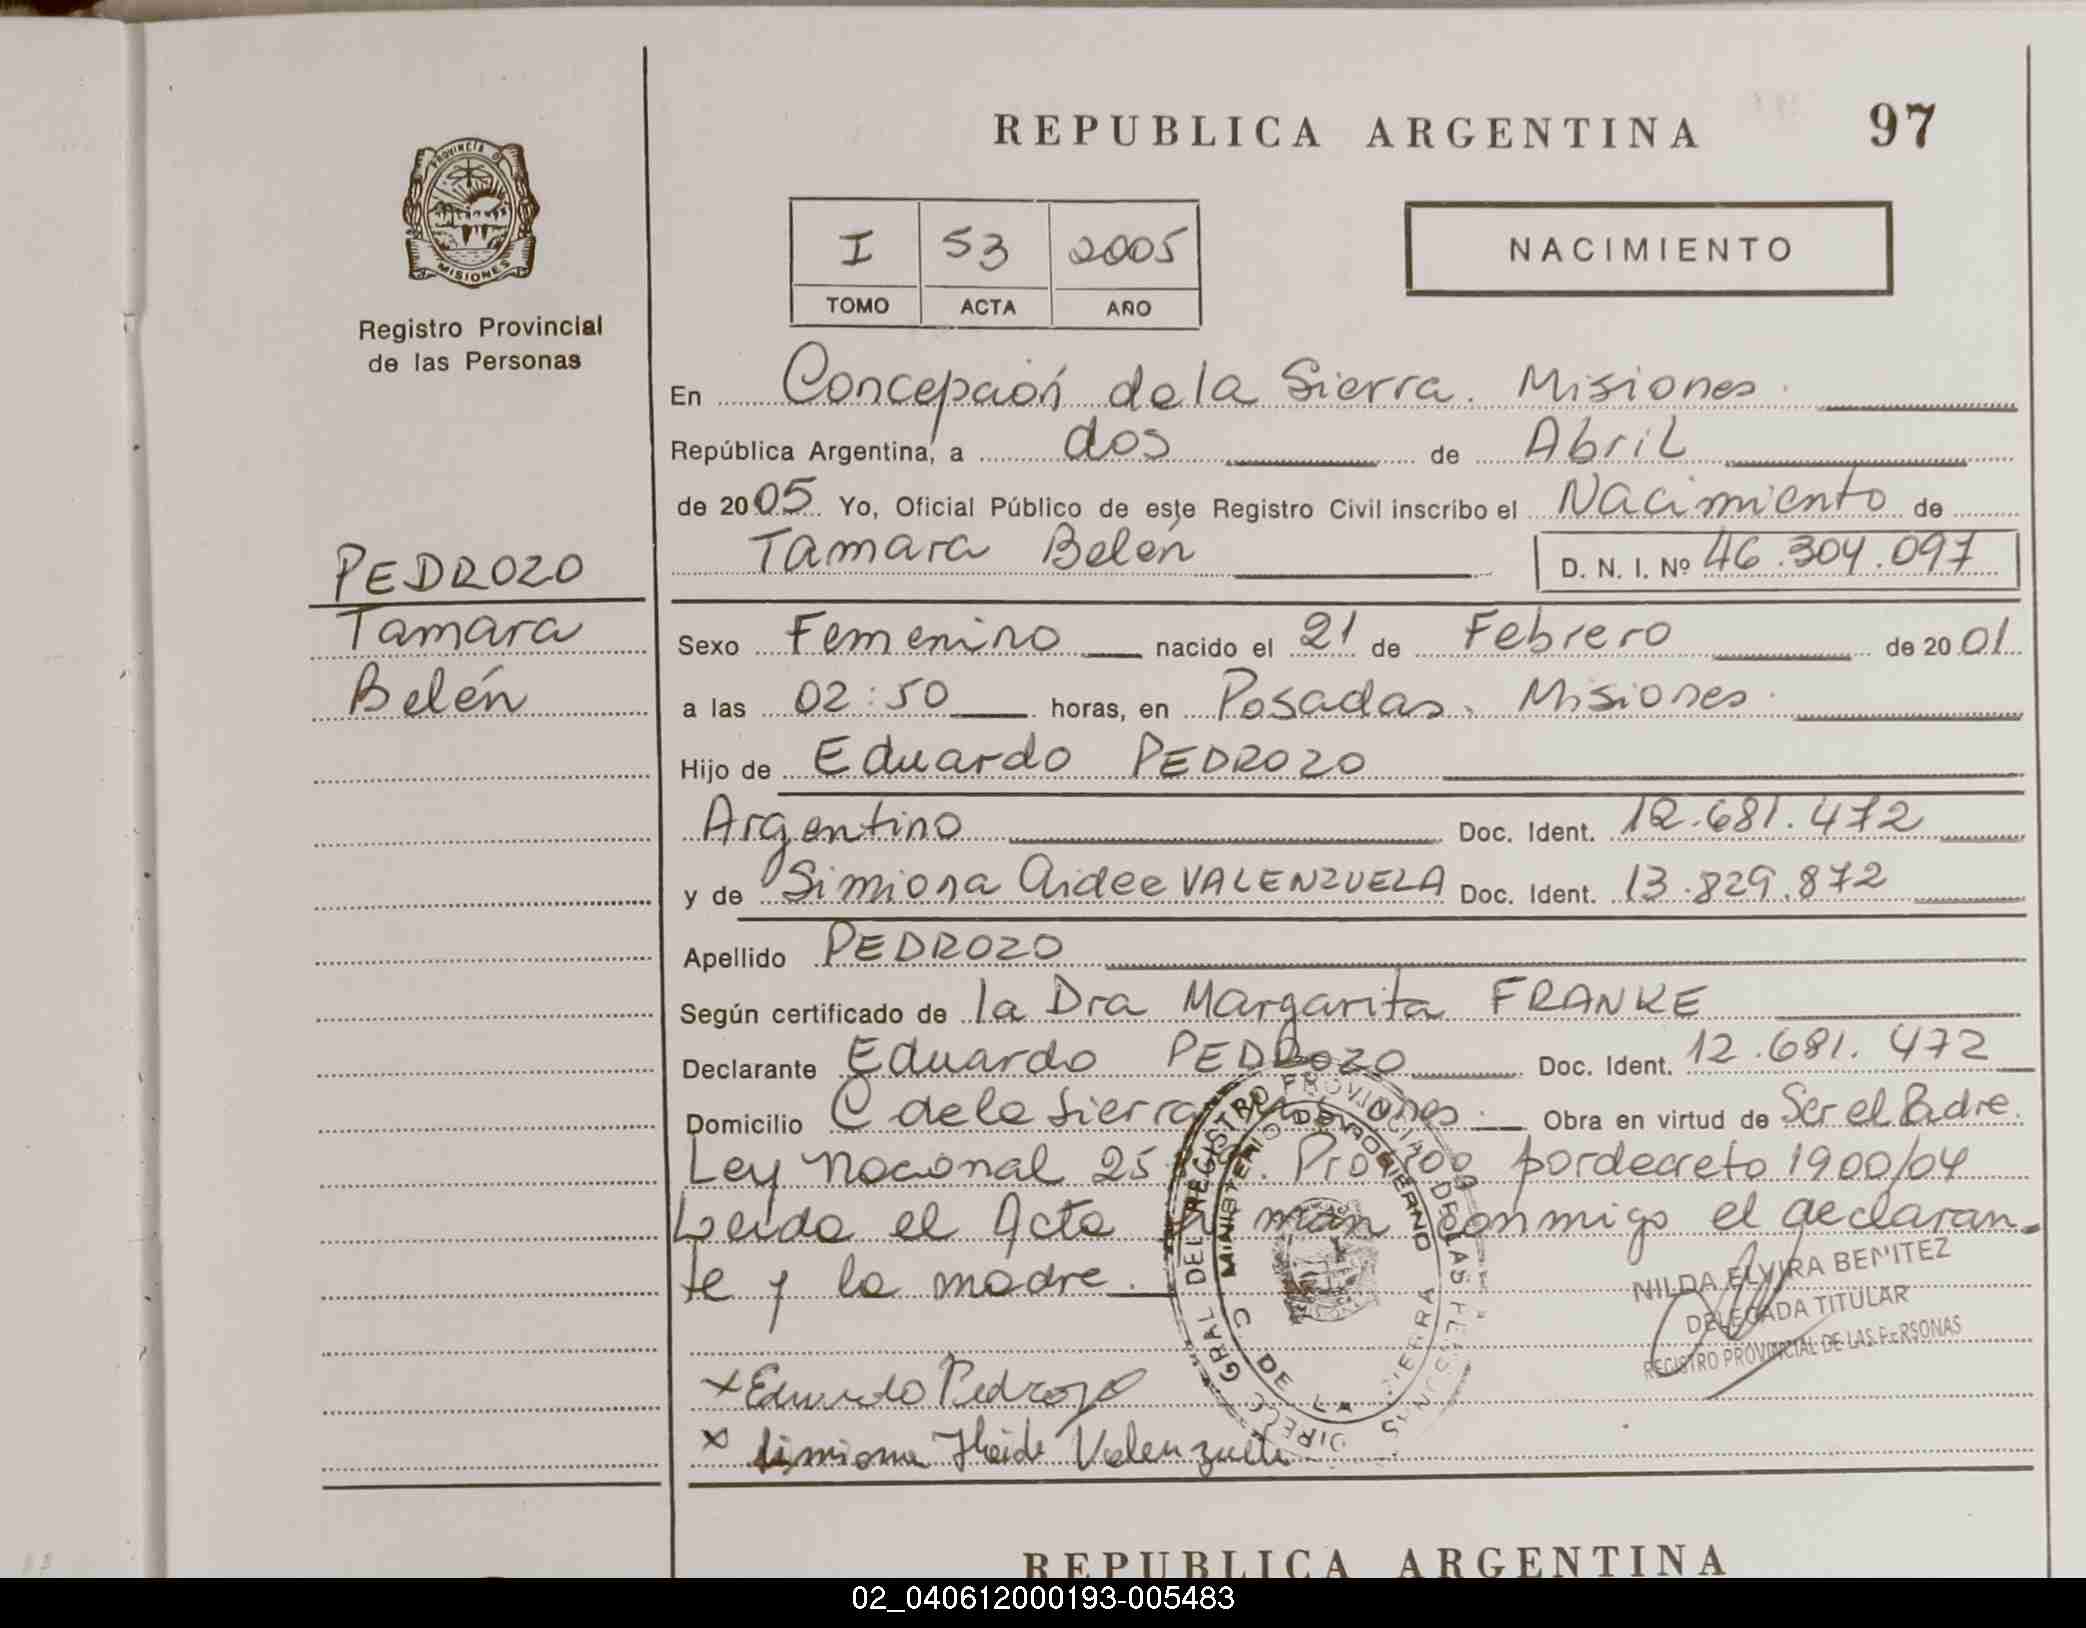 REPUBLICA ARGENTINA 97
PROVINCIA DE
MISIONES
Registro Provincial
de las Personas
I 53 2005
TOMO ACTA AÑO
NACIMIENTO
En Concepción de la Sierra. Misiones.
República Argentina, a dos de Abril
de 2005 Yo, Oficial Público de este Registro Civil inscribo el Nacimiento de
Tamara Belén D. N. I. Nº 46.304.097
PEDROZO
Tamara
Belén
Sexo Femenino nacido el 21 de Febrero de 2001
a las 02:50 horas, en Posadas. Misiones.
Hijo de Eduardo PEDROZO
Argentino Doc. Ident. 12.681.472
y de Simiona Aidee VALENZUELA Doc. Ident. 13.829.872
Apellido PEDROZO
Según certificado de la Dra Margarita FRANKE
Declarante Eduardo PEDROZO Doc. Ident. 12.681.472
Domicilio C de la Sierra Misiones. Obra en virtud de Ser el Padre.
Ley Nacional 25 por decreto 1900/04
Leida el Acta firman conmigo el declaran-
te y la madre.
DIRECC GRAL DEL REGISTRO PROVINCIAL DE LAS PERSONAS
MINISTERIO DE GOBIERNO
C. DE LA SIERRA
NILDA ELVIRA BENITEZ
DELEGADA TITULAR
REGISTRO PROVINCIAL DE LAS PERSONAS
x Eduardo Pedrozo
x Simiona Valenzuela
REPUBLICA ARGENTINA
02_040612000193-005483